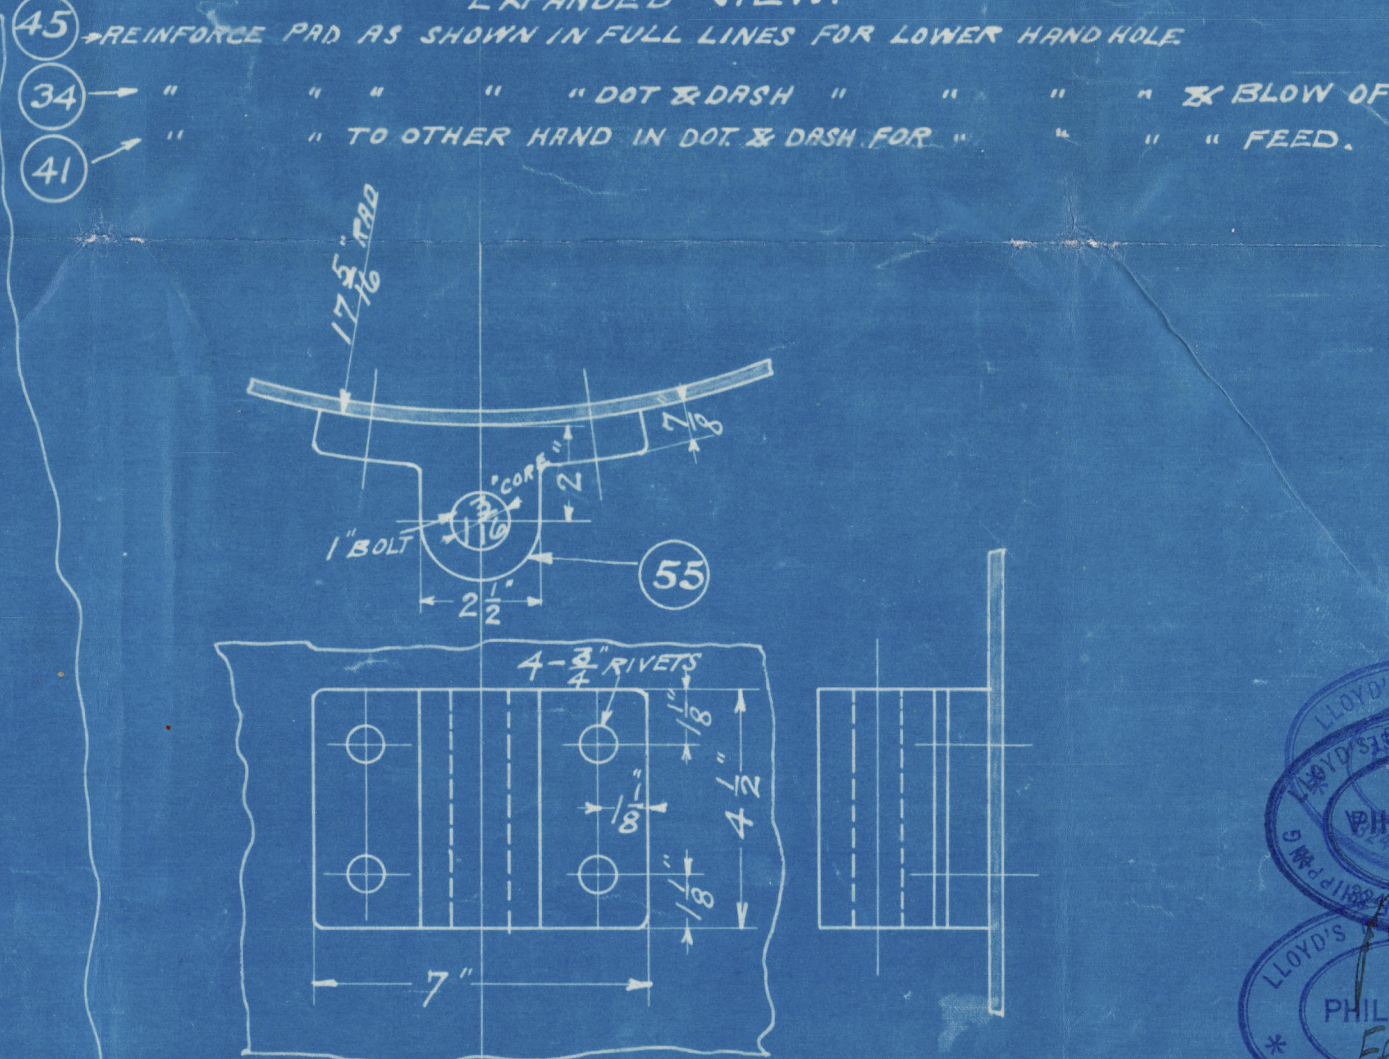 EXPANDED VIEW.
45 REINFORCE PAD AS SHOWN IN FULL LINES FOR LOWER HAND HOLE
34 " " " " " DOT & DASH " " " " & BLOW OF
41 " " TO OTHER HAND IN DOT. & DASH FOR " " " " FEED.
17 5/16" RAD
7/8
2"
1 3/16" CORE
1" BOLT
55
2 1/2"
4 - 3/4" RIVETS
1 1/8"
4 1/2"
1 1/8"
1 1/8"
7"
LLOYD'S
LLOYD'S
SHIPPING
LLOYD'S
PHIL